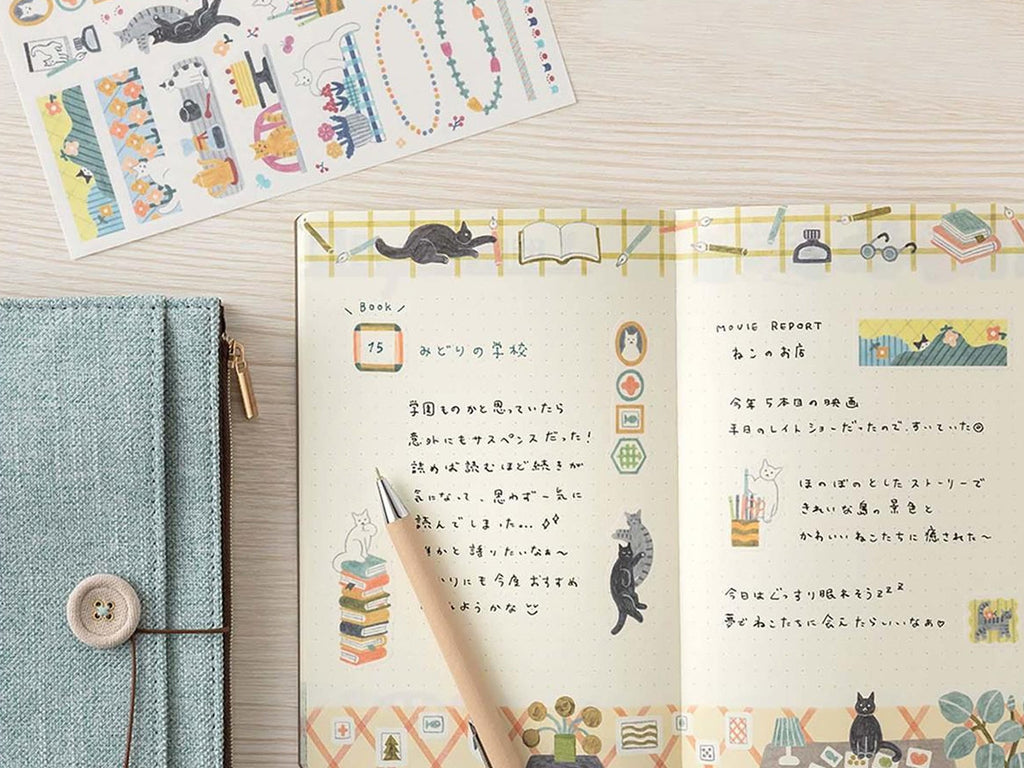 Book
15
みどりの学校
学園ものかと思っていたら
意外にもサスペンスだった!
読めば読むほど続きが
気になって、思わず一気に
読んでしまった…
かと語りたいなぁ〜
りにも今度おすすめ
ようかな
MOVIE REPORT
ねこのお店
今年5本目の映画
平日のレイトショーだったので、すいていた☺
ほのぼのとしたストーリーで
きれいな島の景色と
かわいいねこたちに癒された〜
今日はぐっすり眠れそうzzz
夢でねこたちに会えたらいいなぁ♡